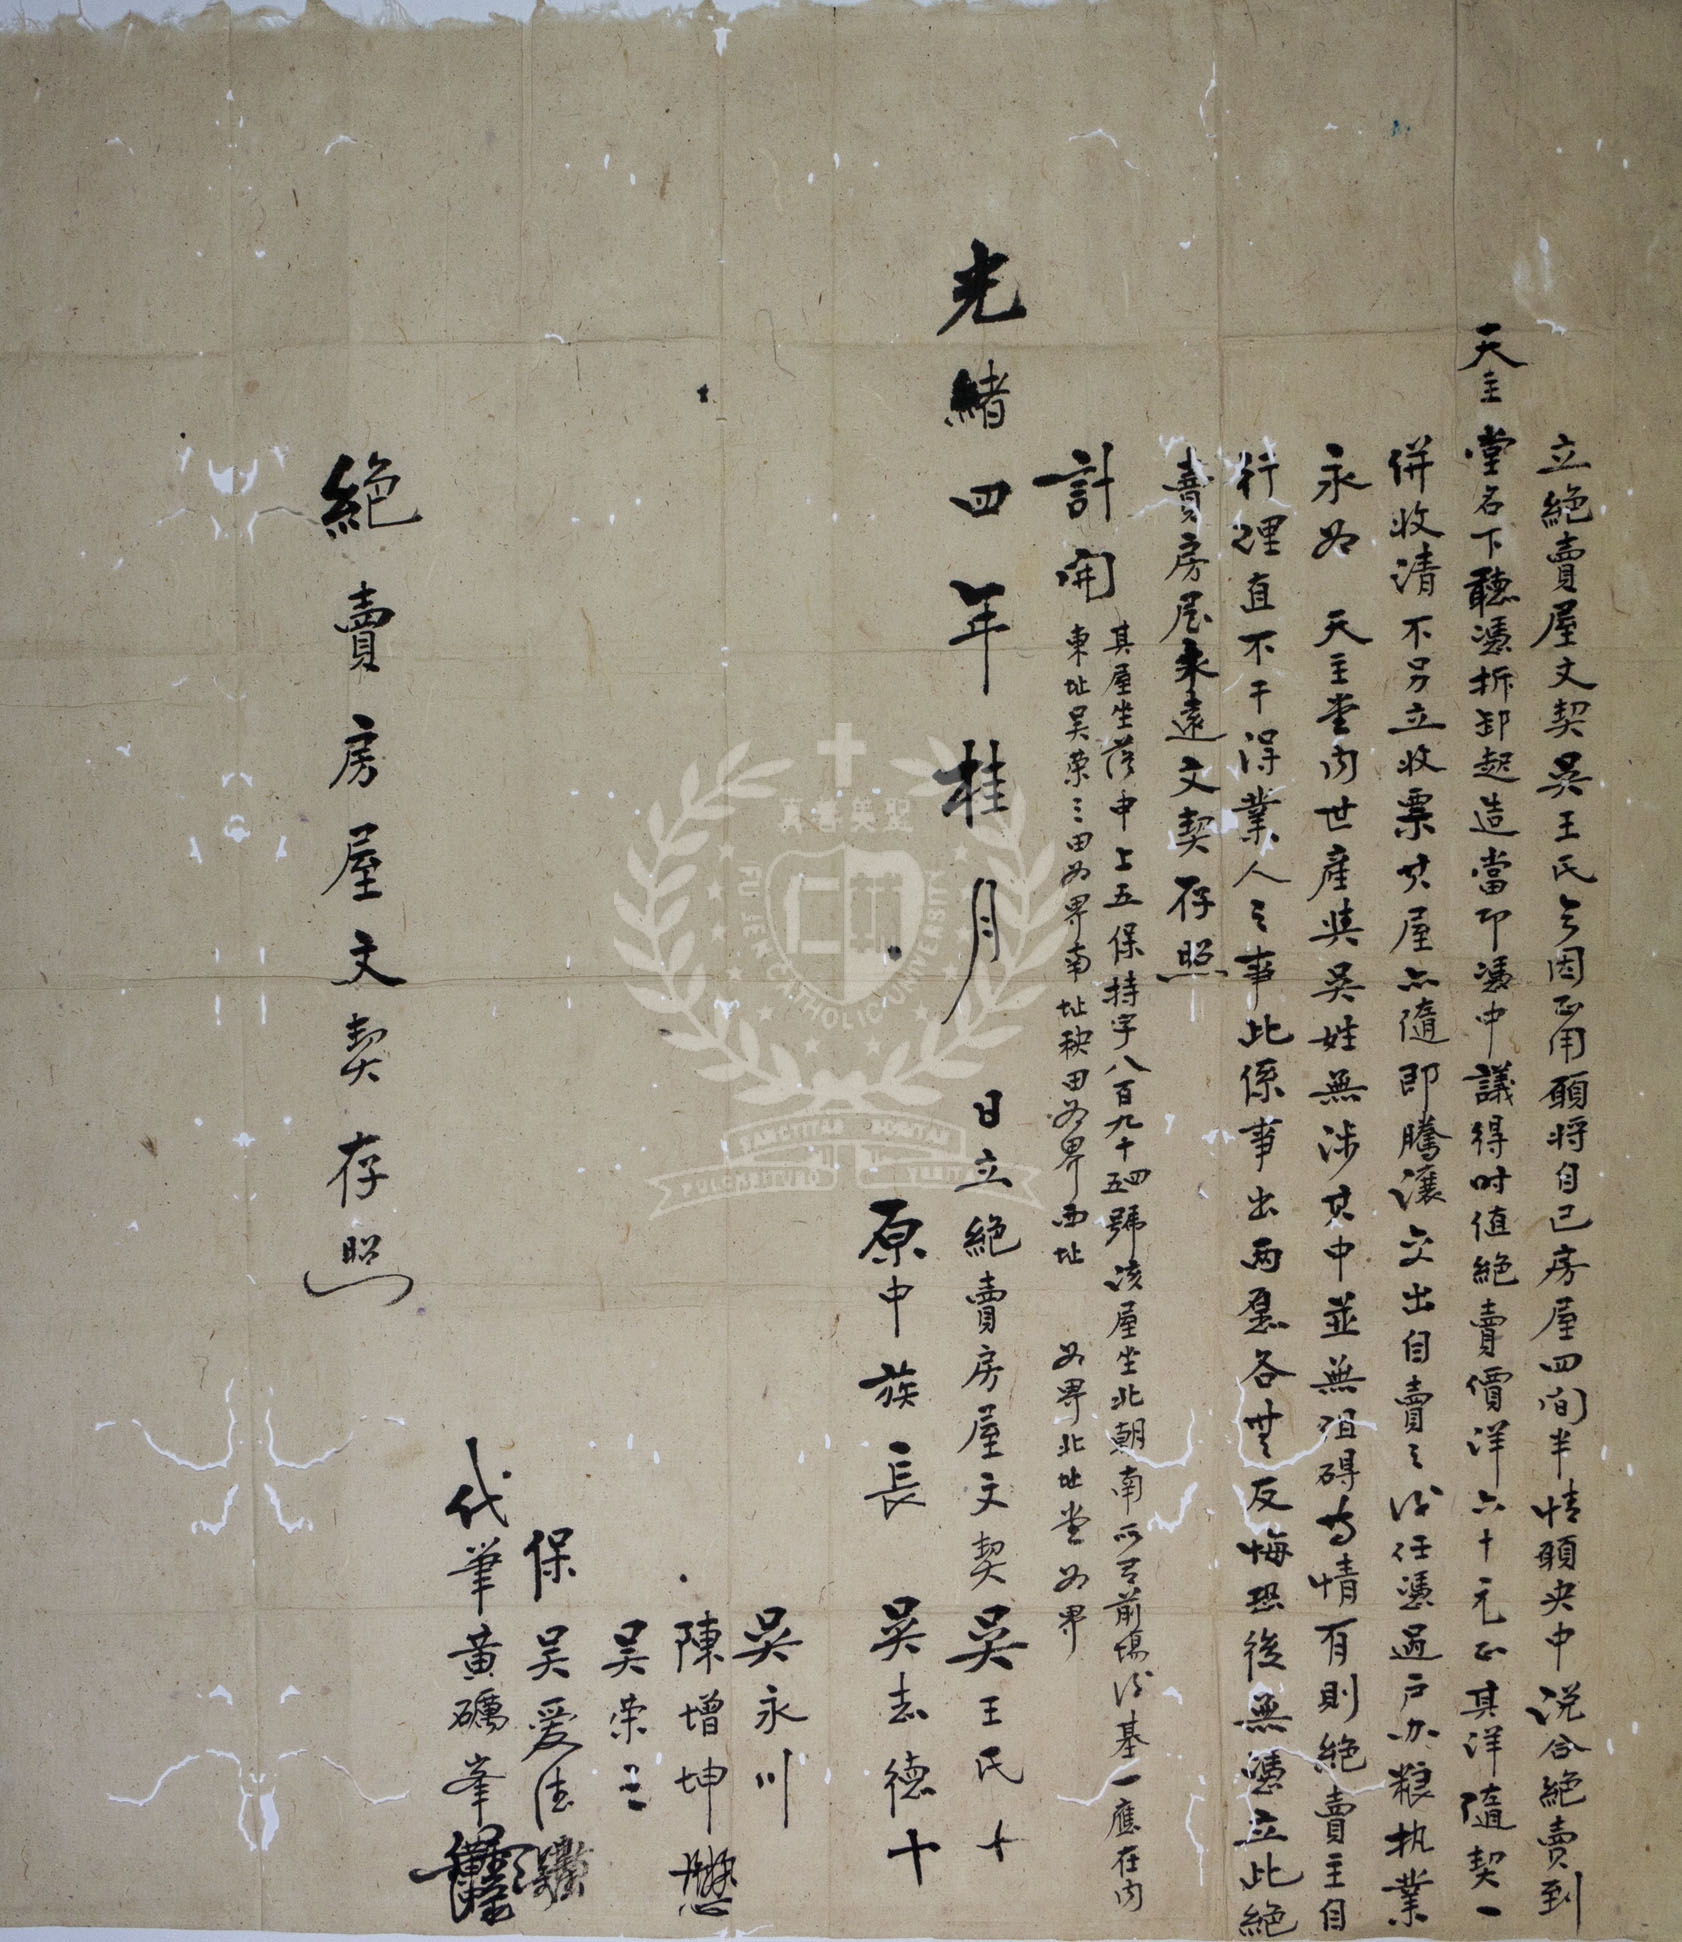 立絕賣屋文契吳王氏今因正用願將自己房屋四間半情願央中說合絕賣到
天主堂名下聽憑拆卸起造當即憑中議得时值絕賣價洋六十元正其洋隨契一
併收清不另立收票其屋亦隨即騰讓交出自賣之后任憑過户办粮执業
永为 天主堂内世産與吳姓無涉其中並無阻碍为情有則絕賣主自
行理直不干得業人之事此係事出两愿各無反悔恐後無憑立此絕
賣房屋永遠文契存照
計開 其屋坐落申上五保持字八百九十四五號该屋坐北朝南所有前場后基一應在内
東址吳荣三田为界南址秧田为界西址 为界北址堂为界
光緒四年桂月 日立絕賣房屋文契吳王氏十
原中族長 吳志德十
吳永川
陳增坤
吴荣三
保 吴爱法
代筆黃礪峯
絕賣房屋文契存照
聖美善真
FU JEN CATHOLIC UNIVERSITY
SANCTITAS BONITAS
PULCHRITUDO VERITAS